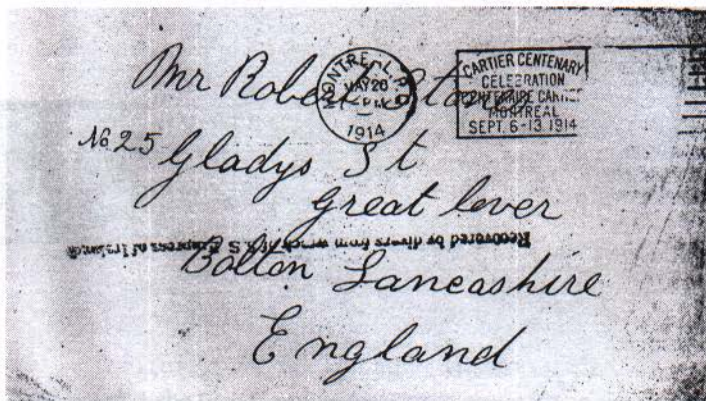 Mr Robert
MONTREAL, P.Q.
MAY 20
PM
1914
CARTIER CENTENARY
CELEBRATION
CENTENAIRE CARTIER
MONTREAL
SEPT. 6-13 1914
No 25 Gladys St
Great lever
Recovered by divers from wreck of S.S. Empress of Ireland
Bolton Lancashire
England